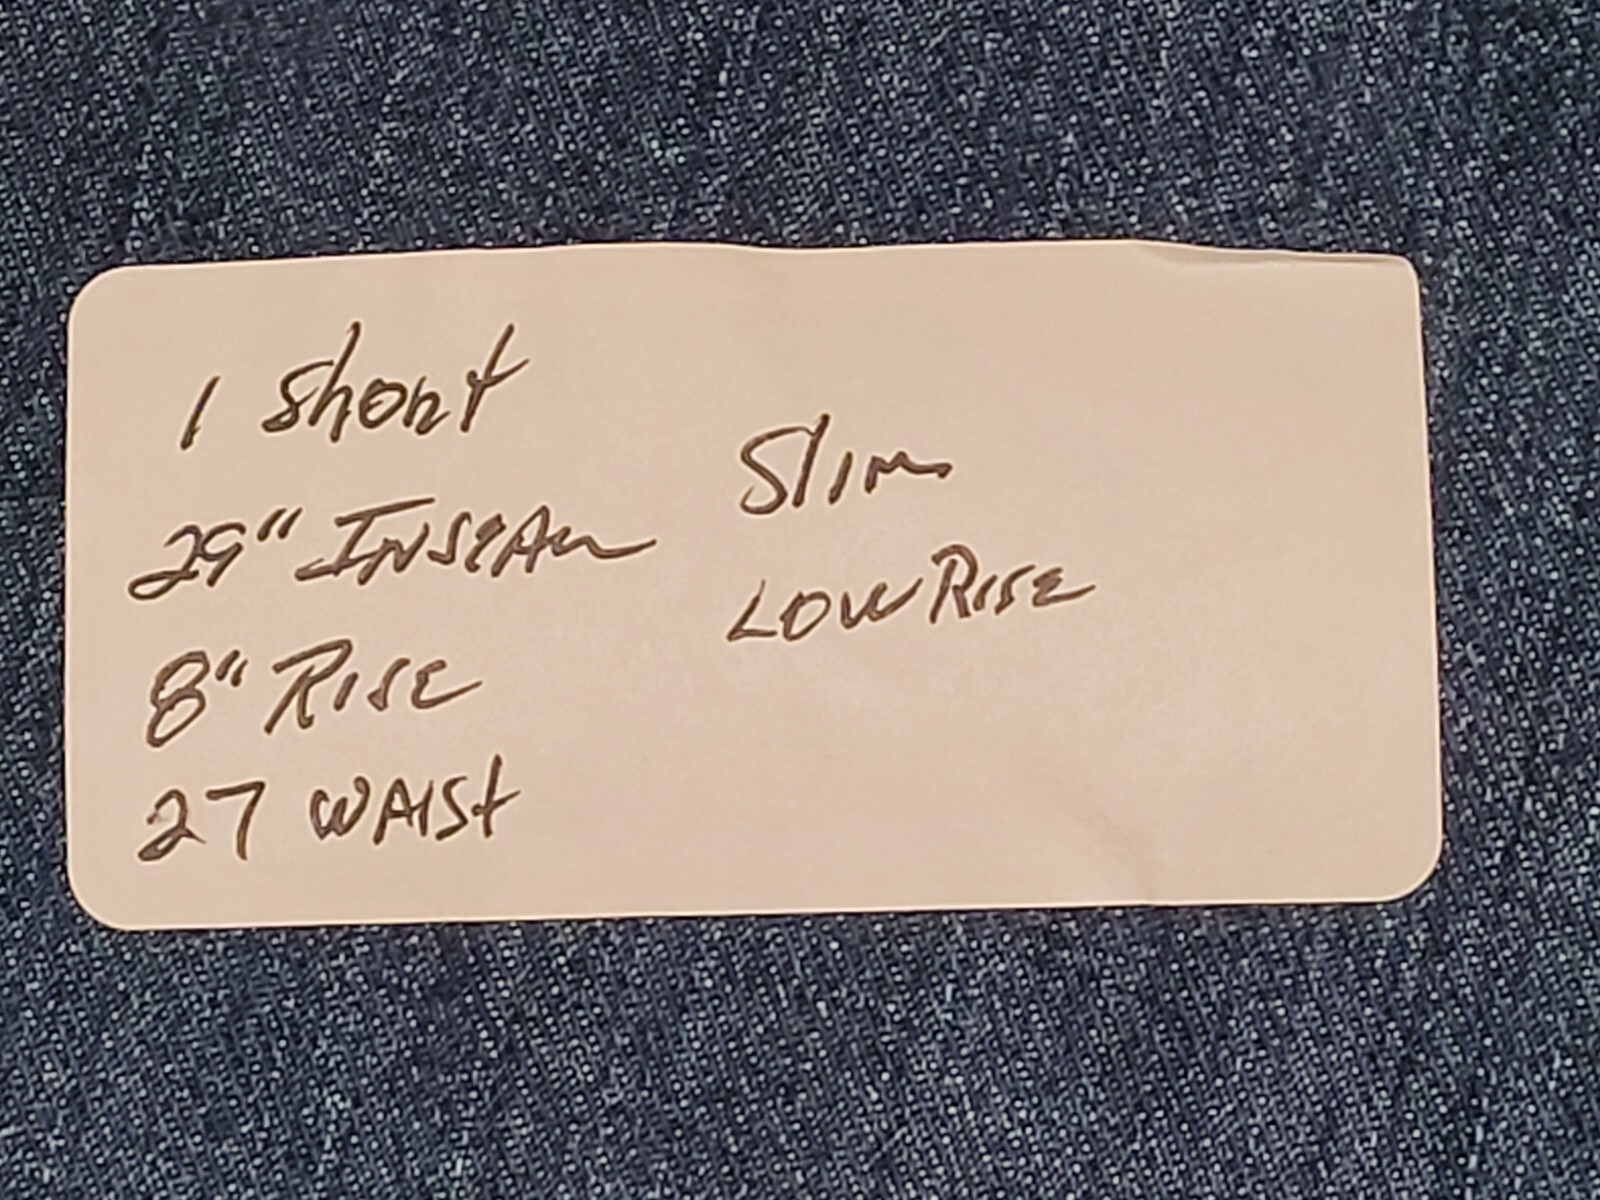 1 Short
29" INSEAM
8" RISE
27 WAISt
Slim
LOW RISE